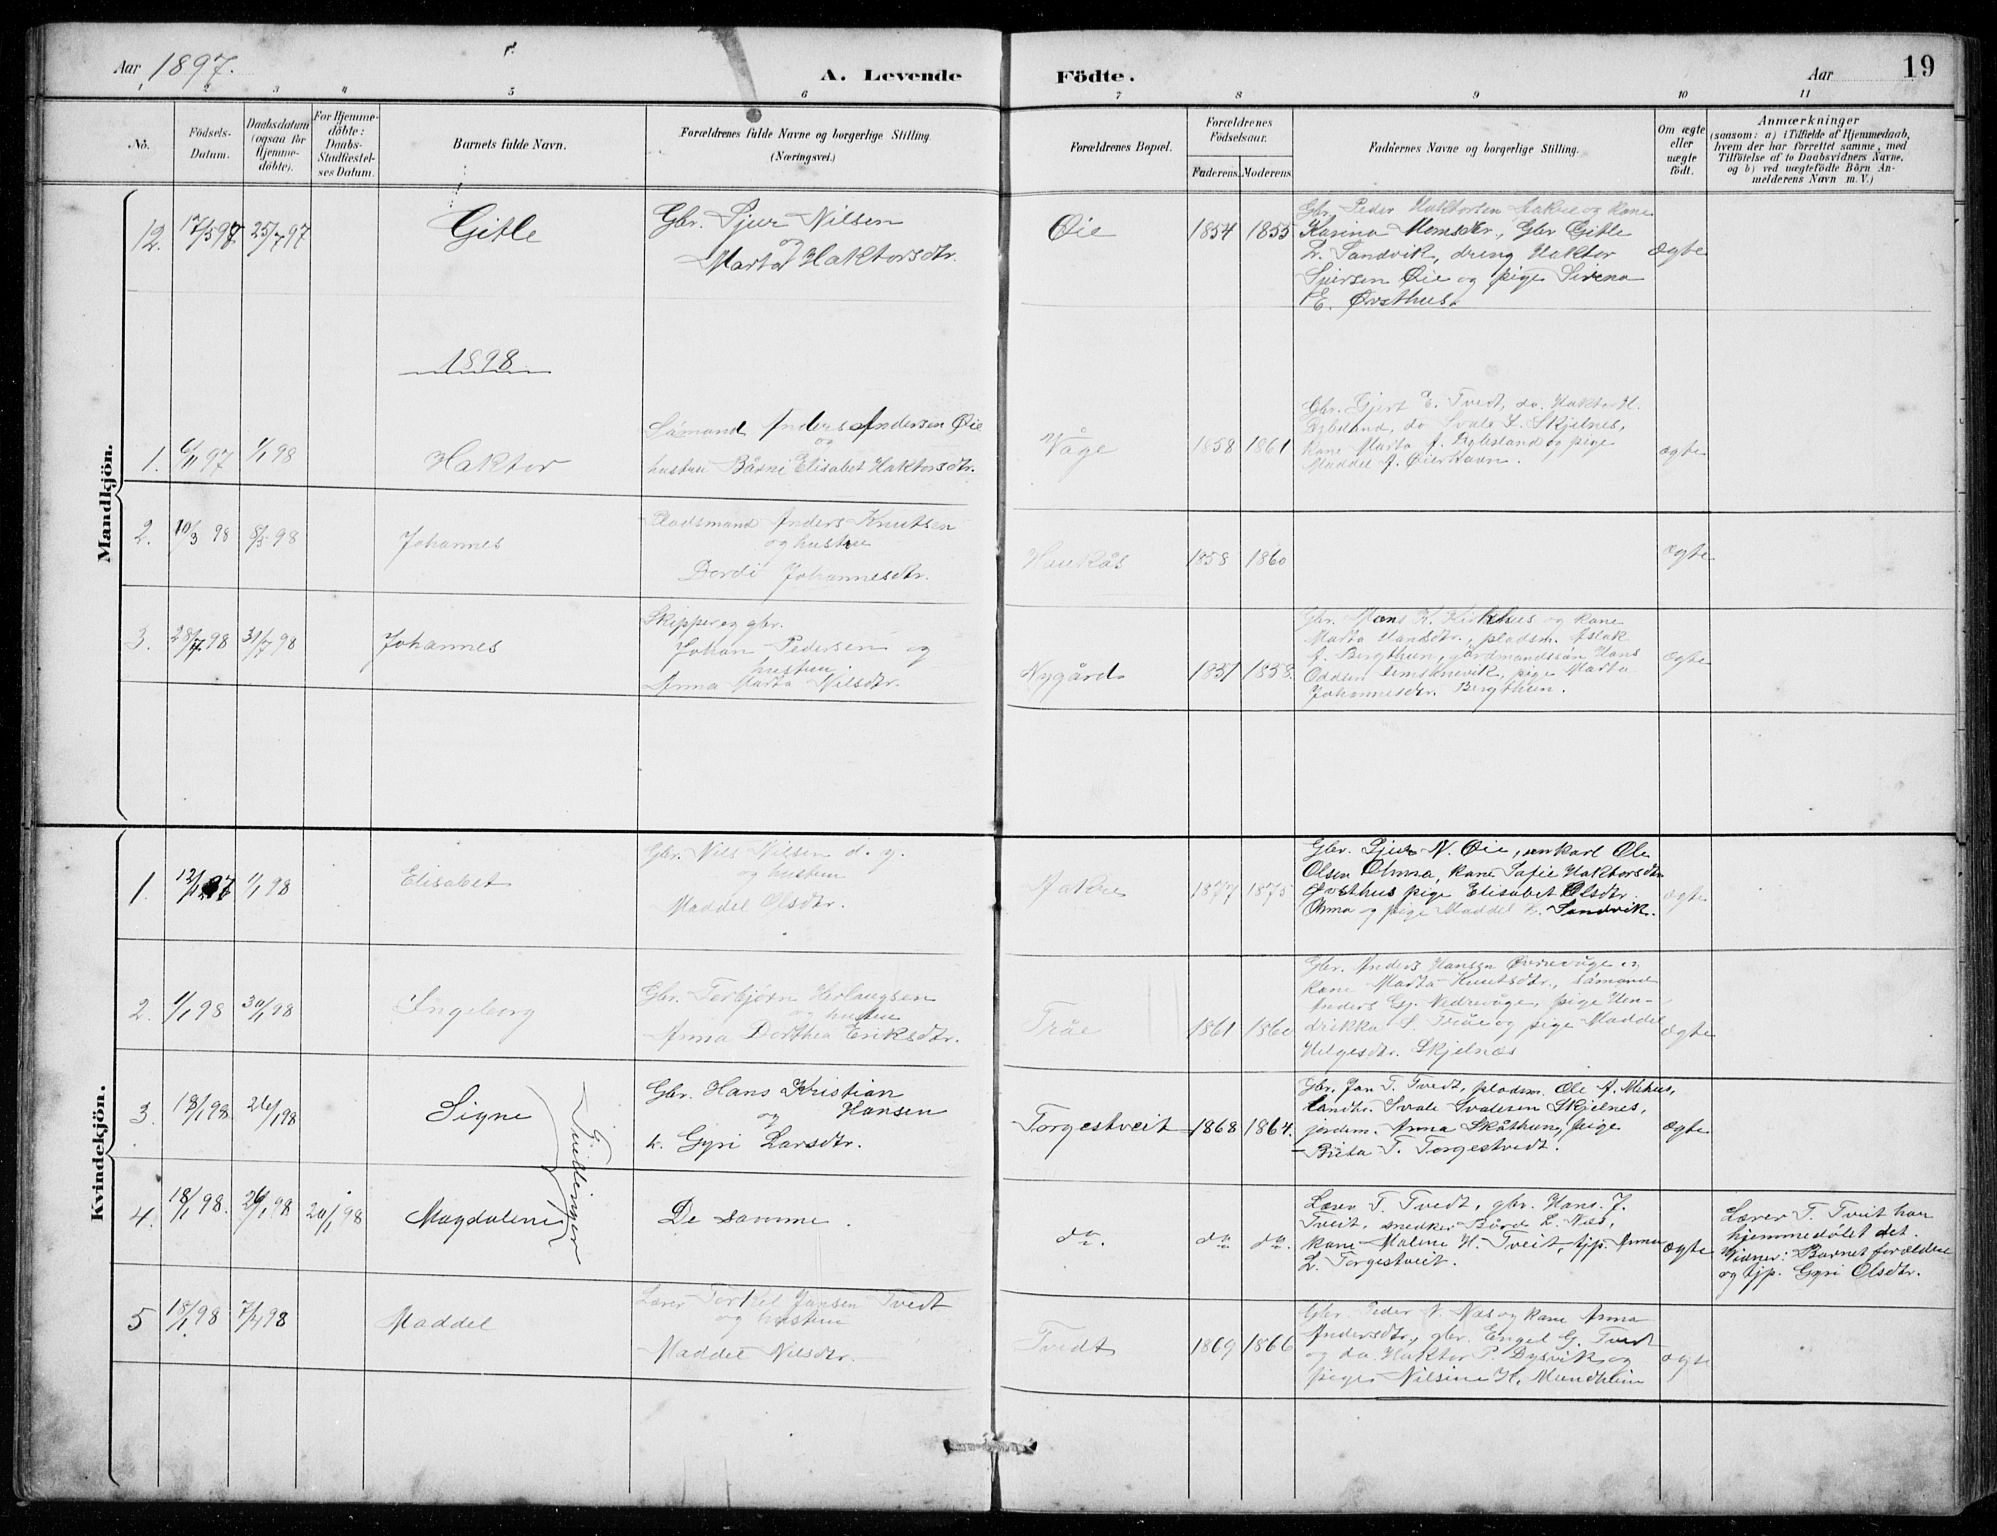 Aar 1897.
A. Levende Födte.
Aar
19
1 2 3 4 5 6 7 8 9 10 11
No.
Födsels-Datum.
Daabsdatum (ogsaa for Hjemme-döbte).
For Hjemme-döbte: Daabs-Stadfæstel-ses Datum.
Barnets fulde Navn.
Forældrenes fulde Navne og borgerlige Stilling (Næringsvei.)
Forældrenes Bopæl.
Forældrenes Födselsaar.
Faderens. Moderens.
Faddernes Navne og borgerlige Stilling.
Om ægte eller uægte födt.
Anmærkninger
(saasom: a) i Tilfælde af Hjemmedaab,
hvem der har forrettet samme, med
Tilföielse af to Daabsvidners Navne,
og b) ved uægtefödte Börn An-
melderens Navn m. V.)
Mandkjön.
12. 17/5 97. 25/7 97 Gitle
Gbr. Sjur Nilsen
og
Marta Haktorsdtr.
Øie 1854 1855
Gbr. Peder Haktorsen og kone
Karina Monsdtr., Gbr Gitle
L. Sandvik, dreng Haktor
Sjursen Øie og pige Sirena
E. Øvsthus.
Ægte
1898
1. 6/11 97 1/1 98 Haktor
Sömand Anders Andersen Øie
og
hustru Elisabet Haktorsdtr.
Våge 1858 1861
Gbr. Gjert E. Tvedt, do. Haktor H.
do Svale I. Skjelnes,
kone Marta og pige
Maddel A.
ægte
2. 10/3 98 8/5 98 Johannes
Pladsmand Anders Knutsen
og hustru
Dordi Johannesdtr.
Haukås 1858 1860
ægte
3. 28/7 98 31/7 98 Johannes
Skipper og gbr.
Johan Pedersen og
hustru
Anna Marta Nilsdtr.
Nygård 1851 1858.
Gbr. Mons K. Kirkhus og kone
Marta Hansdtr., pladsm. Aslak
A. Berghun, gårdmandssøn Hans
Oddsen pige Marta
Johannesdtr.
ægte
Kvindekjön.
1. 97 1/1 98 Elisabet
Gbr. Nils Nilsen d. y.
og hustru
Maddel Olsdtr.
1877 1875
Gbr. Sjur N. Øie, Ole
Olsen kone Sofie Haktorsdtr
Øvsthus pige Elisabet Olsdtr.
og pige Maddel L. Sandvik.
ægte
2. 1/1 98 30/1 98 Ingeborg
Gbr. Torbjørn Herlaugsen
og hustru
Anna Dorthea Eriksdtr.
Tråe 1861 1860
Gbr. Anders Hansen Øvrevåge og
kone Marta Knutsdtr., sømand
Anders Gj. Nedrevåge, pige Hen-
drikka S. Tråe og pige Maddel
Helgesdtr. Skjelnæs
ægte
3. 18/1 98 26/1 98 Signe
Tvillinger
Gbr. Hans Kristian
og Hansen
h. Gyri Larsdtr.
Torgestveit 1868 1864.
Gbr. Jan T. Tvedt, pladsm. Ole A. Mehus,
landhr. Svale Svalesen Skjelnes,
jordem. Anna pige
Brita T. Torgestvedt.
ægte
4. 18/1 98. 26/1 98 20/1 98 Magdalene
De samme.
do. do do.
Lærer T. Tvedt, gbr. Hans J.
Tveit, snedker Bård L. Næs,
kone Malene H. Tveit, tjp. Anna
L. Torgestveit.
ægte
Lærer T. Tveit har
hjemmedøbt det.
Vidner: Barnets forældre
og tjp. Gyri Olsdtr.
5 18/1 98 98 Maddel
Lærer Torkel Jansen Tvedt
og hustru
Maddel Nilsdtr.
Tvedt 1869 1866
Gbr Peder N. Næs og kone Anna
Andersdtr., gbr. Engel G. Tvedt
og do Haktor P. Dysvik og
pige Nilsine H. Mundheim
ægte